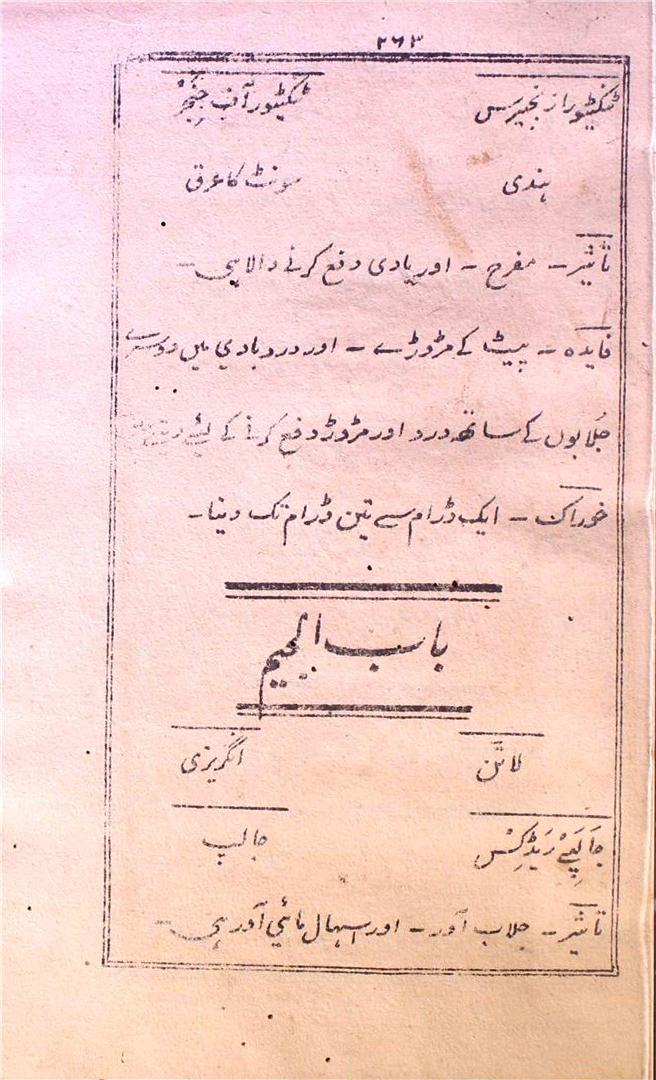 ۲۶۳
ٹنکیٹورا زنجیبرس ٹنکیٹور آف جِنجَرْ
ہندی سونٹ کا عرق
تاثیر۔ مفرح ۔ اور بادی دفع کرنے والا ہی۔
فایدہ ۔ پیٹ کے مڑوڑے ۔ اور درد بادي میں دوسرے
جُلابوں کے ساتھ درد اور مڑوڑ دفع کرنے کے لئے
خوراک ۔ ایک ڈرام سے تین ڈرام تک دینا۔
باب الجیم
لاٹن انگریزی
جَالَپِےْ رَیڈِکسْ جالپ
تاثیر۔ جلاب آور ۔ اور اسہال مائي آور ہی۔